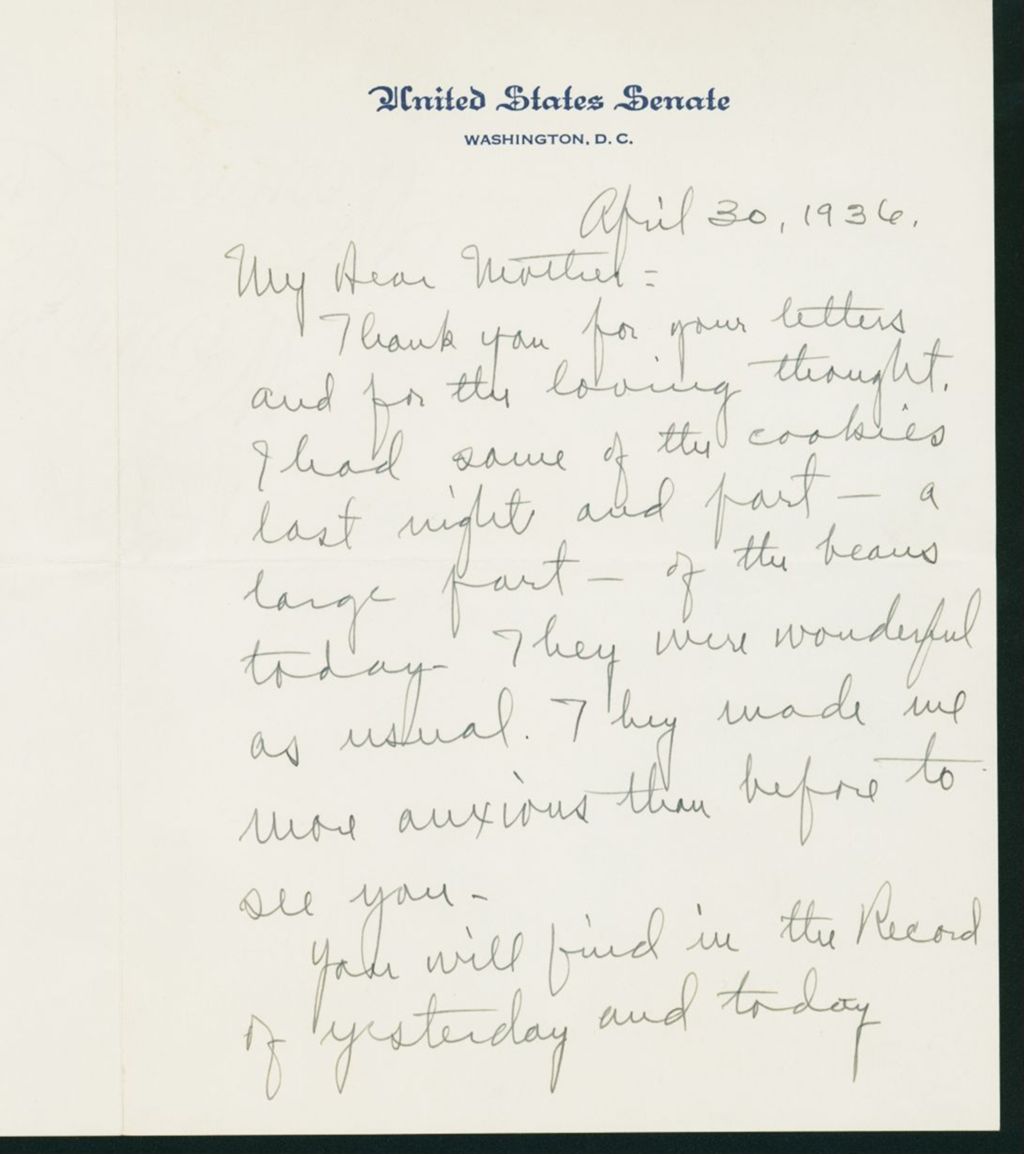 United States Senate
WASHINGTON, D. C.
April 30, 1936.
My Dear Mother =
Thank you for your letters
and for the loving thought.
I had some of the cookies
last night and part — a
large part — of the beans
today - They were wonderful
as usual. They made me
more anxious than before to
see you -
You will find in the Record
of yesterday and today